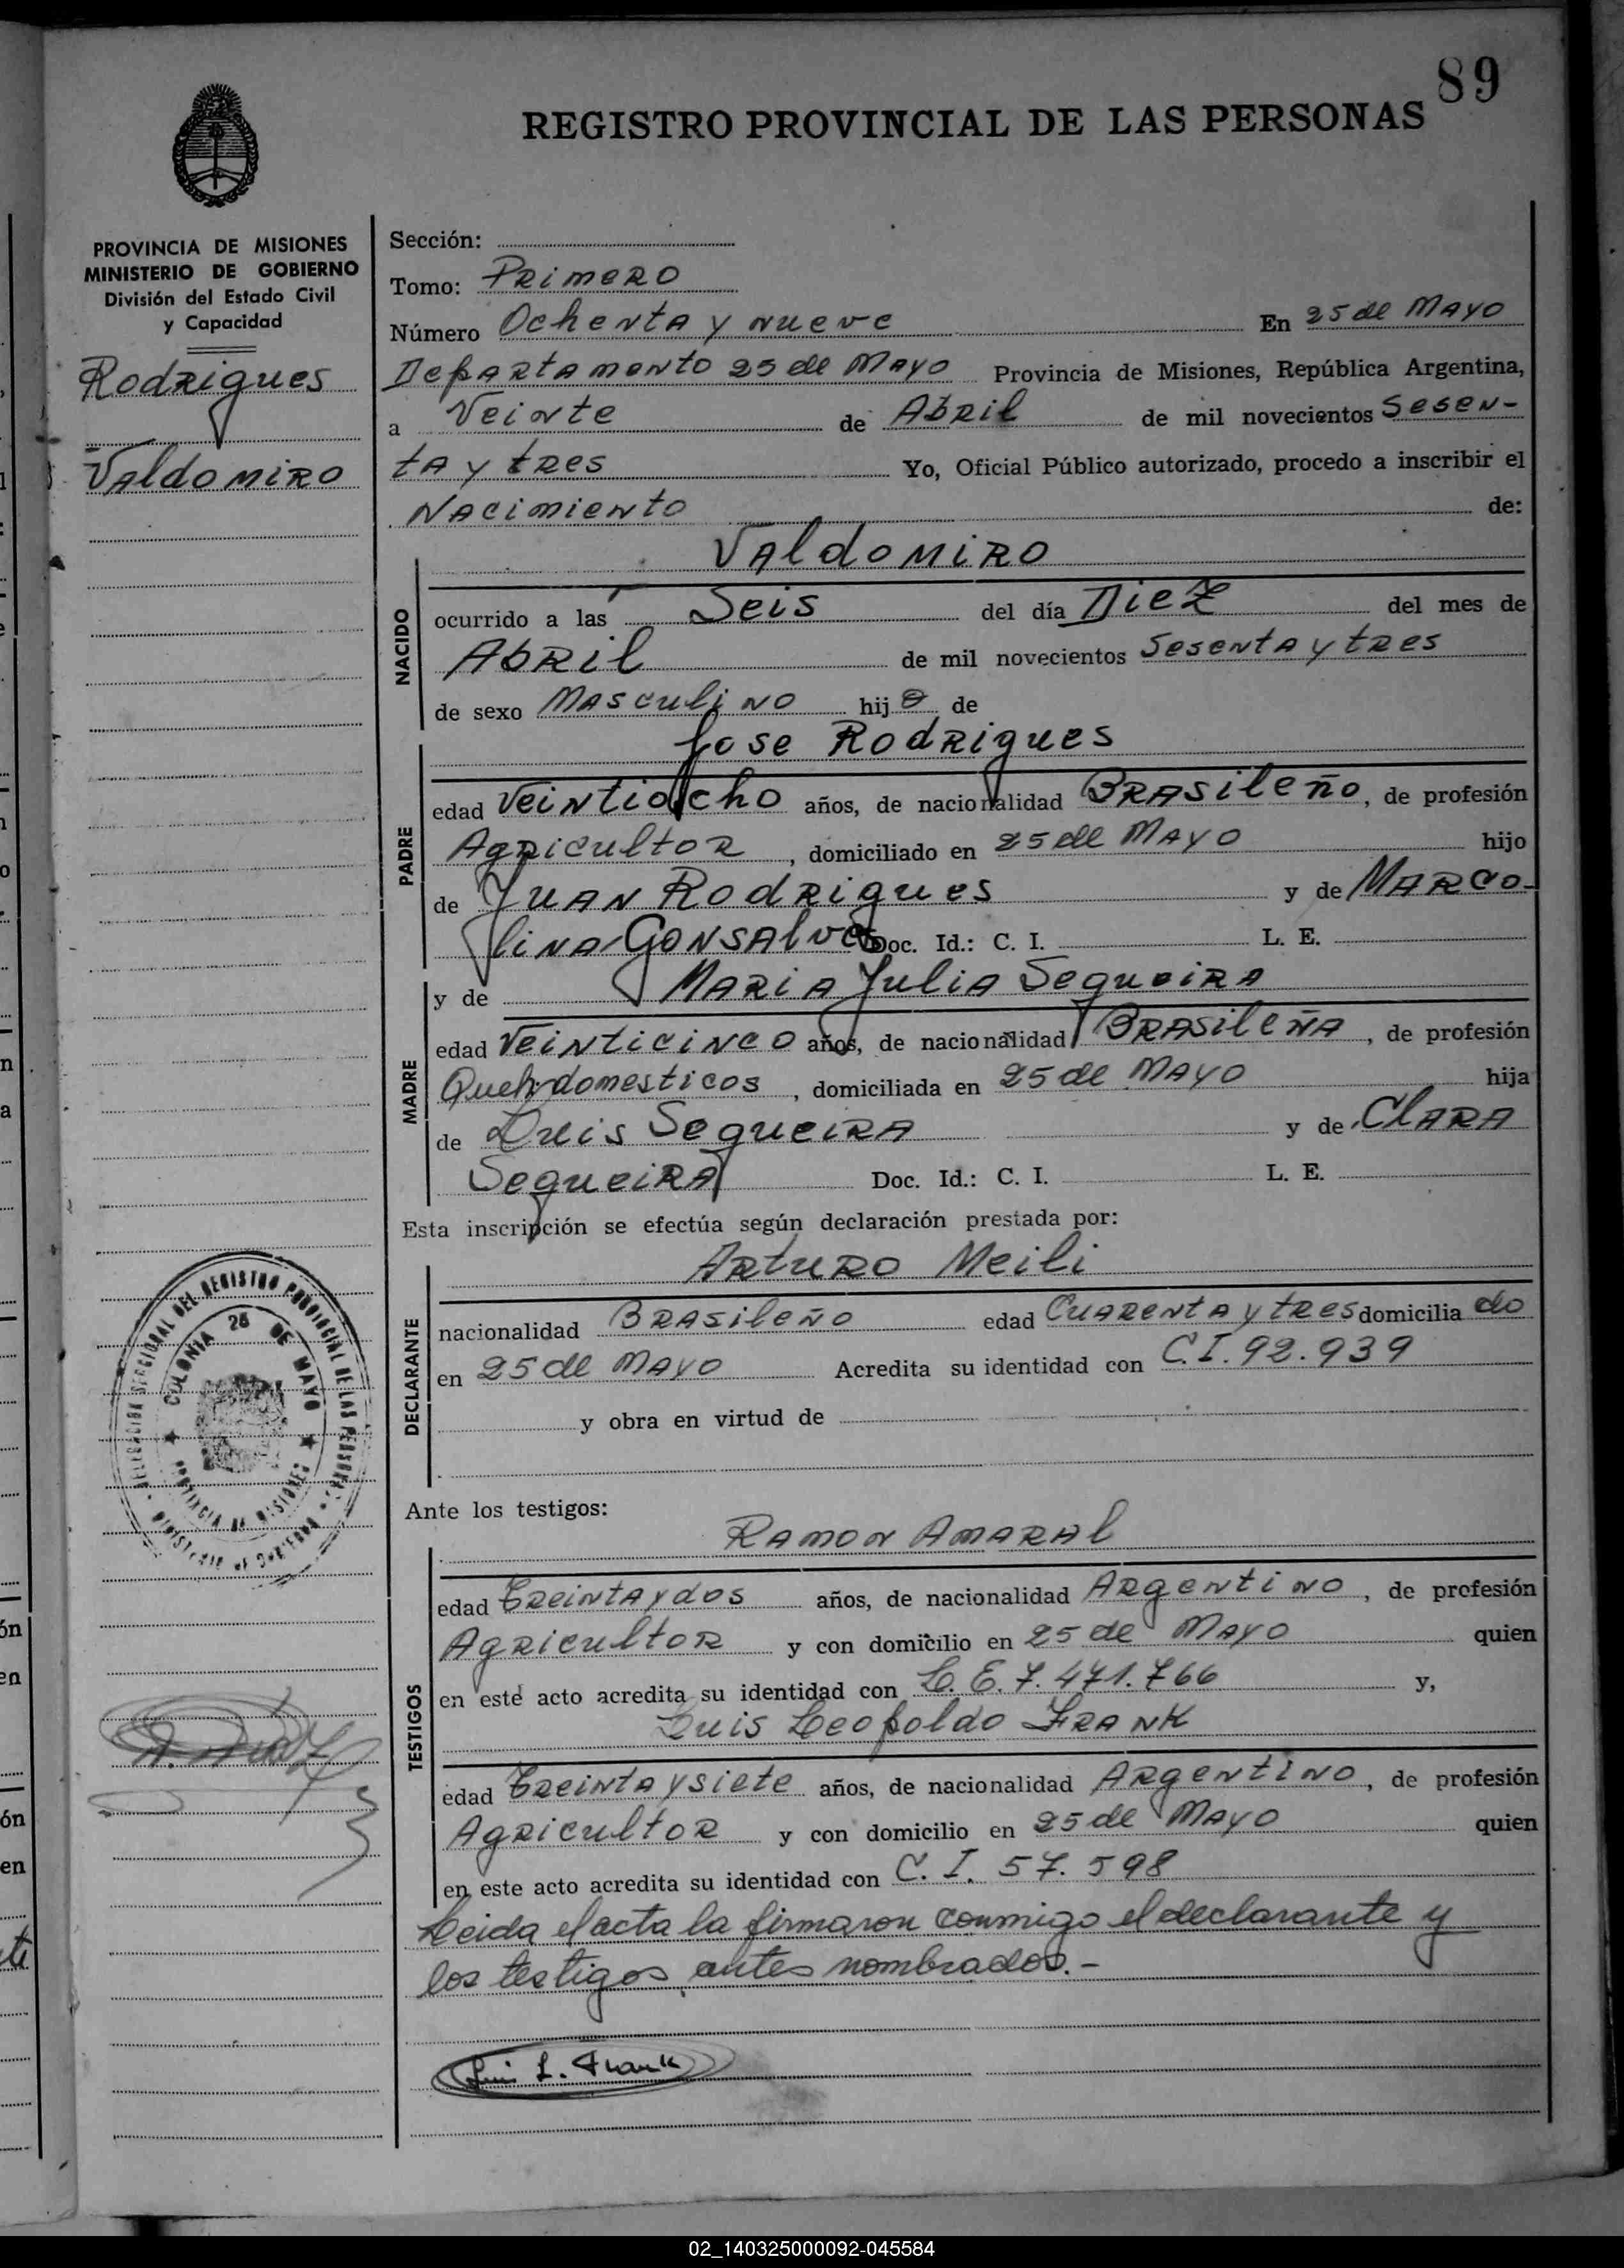 89
REGISTRO PROVINCIAL DE LAS PERSONAS
PROVINCIA DE MISIONES
MINISTERIO DE GOBIERNO
División del Estado Civil
y Capacidad
Rodrigues
Valdomiro
Sección:
Tomo: Primero
Número Ochenta y nueve En 25 de Mayo
Departamento 25 de Mayo Provincia de Misiones, República Argentina,
a Veinte de Abril de mil novecientos Sesen-
ta y tres Yo, Oficial Público autorizado, procedo a inscribir el
Nacimiento de:
Valdomiro
NACIDO
ocurrido a las Seis del día Diez del mes de
Abril de mil novecientos Sesenta y tres
de sexo Masculino hijo de
Jose Rodrigues
PADRE
edad Veintiocho años, de nacionalidad Brasileño, de profesión
Agricultor, domiciliado en 25 de Mayo hijo
de Juan Rodrigues y de Marco-
lina Gonsalves Doc. Id.: C. I. L. E.
y de Maria Julia Sequeira
MADRE
edad Veinticinco años, de nacionalidad Brasileña, de profesión
Queh. domesticos, domiciliada en 25 de Mayo hija
de Luis Sequeira y de Clara
Sequeira Doc. Id.: C. I. L. E.
Esta inscripción se efectúa según declaración prestada por:
Arturo Meili
DECLARANTE
nacionalidad Brasileño edad Cuarenta y tres domiciliado
en 25 de Mayo Acredita su identidad con C.I. 92.939
y obra en virtud de
Ante los testigos:
Ramon Amaral
TESTIGOS
edad Treinta y dos años, de nacionalidad Argentino, de profesión
Agricultor y con domicilio en 25 de Mayo quien
en este acto acredita su identidad con L. E. 7.471.766 y,
Luis Leopoldo Frank
edad Treinta y siete años, de nacionalidad Argentino, de profesión
Agricultor y con domicilio en 25 de Mayo quien
en este acto acredita su identidad con C. I. 57.598
Leida el acta la firmaron conmigo el declarante y
los testigos antes nombrados.-
Luis L. Frank
DELEGACIÓN SECCIONAL DEL REGISTRO PROVINCIAL DE LAS PERSONAS
COLONIA 25 DE MAYO
PROVINCIA DE MISIONES
MINISTERIO DE GOBIERNO
02_140325000092-045584